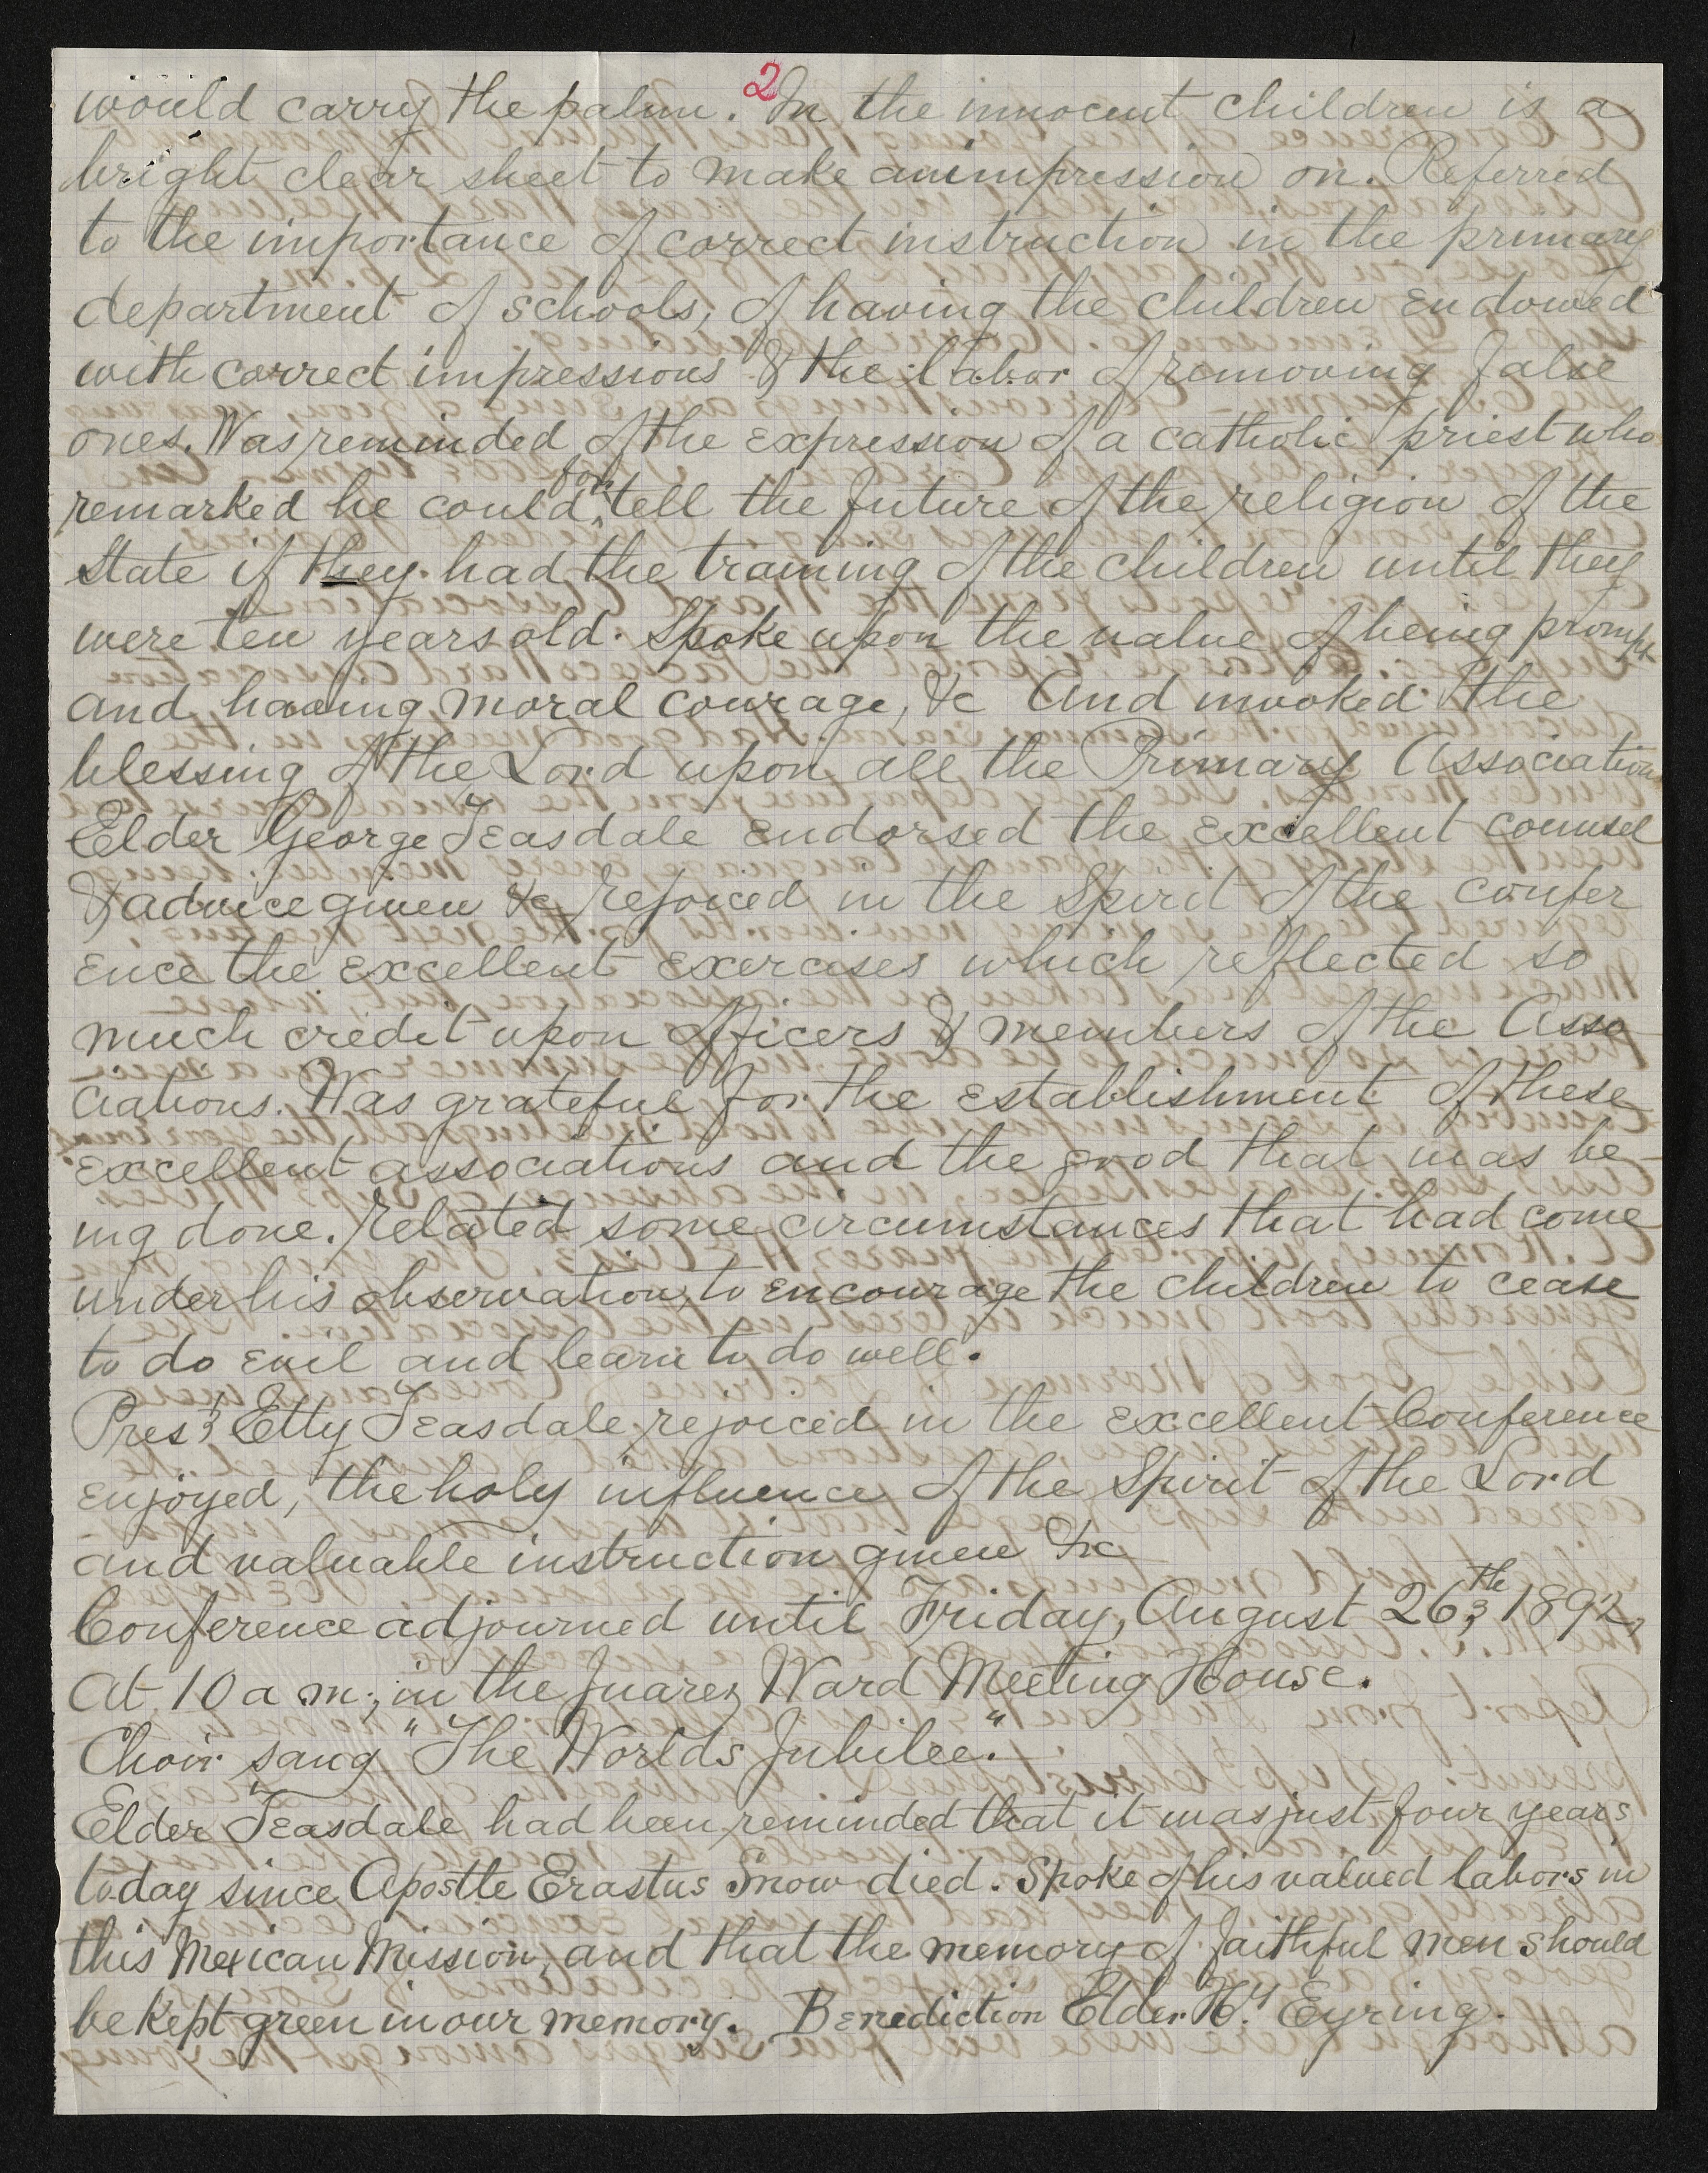 2
would carry the palm. In the innocent children is a
bright clear sheet to make an impression on. Referred
to the importance of correct instruction in the primary
department of schools, of having the children endowed
with correct impressions & the labor of removing false
ones. Was reminded of the expression of a catholic priest who
for
remarked he could tell the future of the religion of the
State if they had the training of the children until they
were ten years old. Spoke upon the value of being prompt
and having moral courage, &c And invoked the
blessing of the Lord upon all the Primary Associations
Elder George Teasdale endorsed the excellent counsel
& advice given &c rejoiced in the Spirit of the confer
ence the excellent exercises which reflected so
much credit upon officers & members of the Asso
ciations. Was grateful for the establishment of these
excellent associations and the good that was be-
ing done. Related some circumstances that had come
under his observation, to encourage the children to cease
to do evil and learn to do well.
Prest Etty Teasdale rejoiced in the excellent Conference
enjoyed, the holy influence of the Spirit of the Lord
and valuable instruction given &c
Conference adjourned until Friday, August 26th, 1892,
At 10 a m; in the Juarez Ward Meeting House.
Choir sang "The Worlds Jubilee."
Elder Teasdale had been reminded that it was just four years
today since Apostle Erastus Snow died. Spoke of his valued labors in
this Mexican Mission, and that the memory of faithful men should
be kept green in our memory. Benediction Elder Hy Eyring.